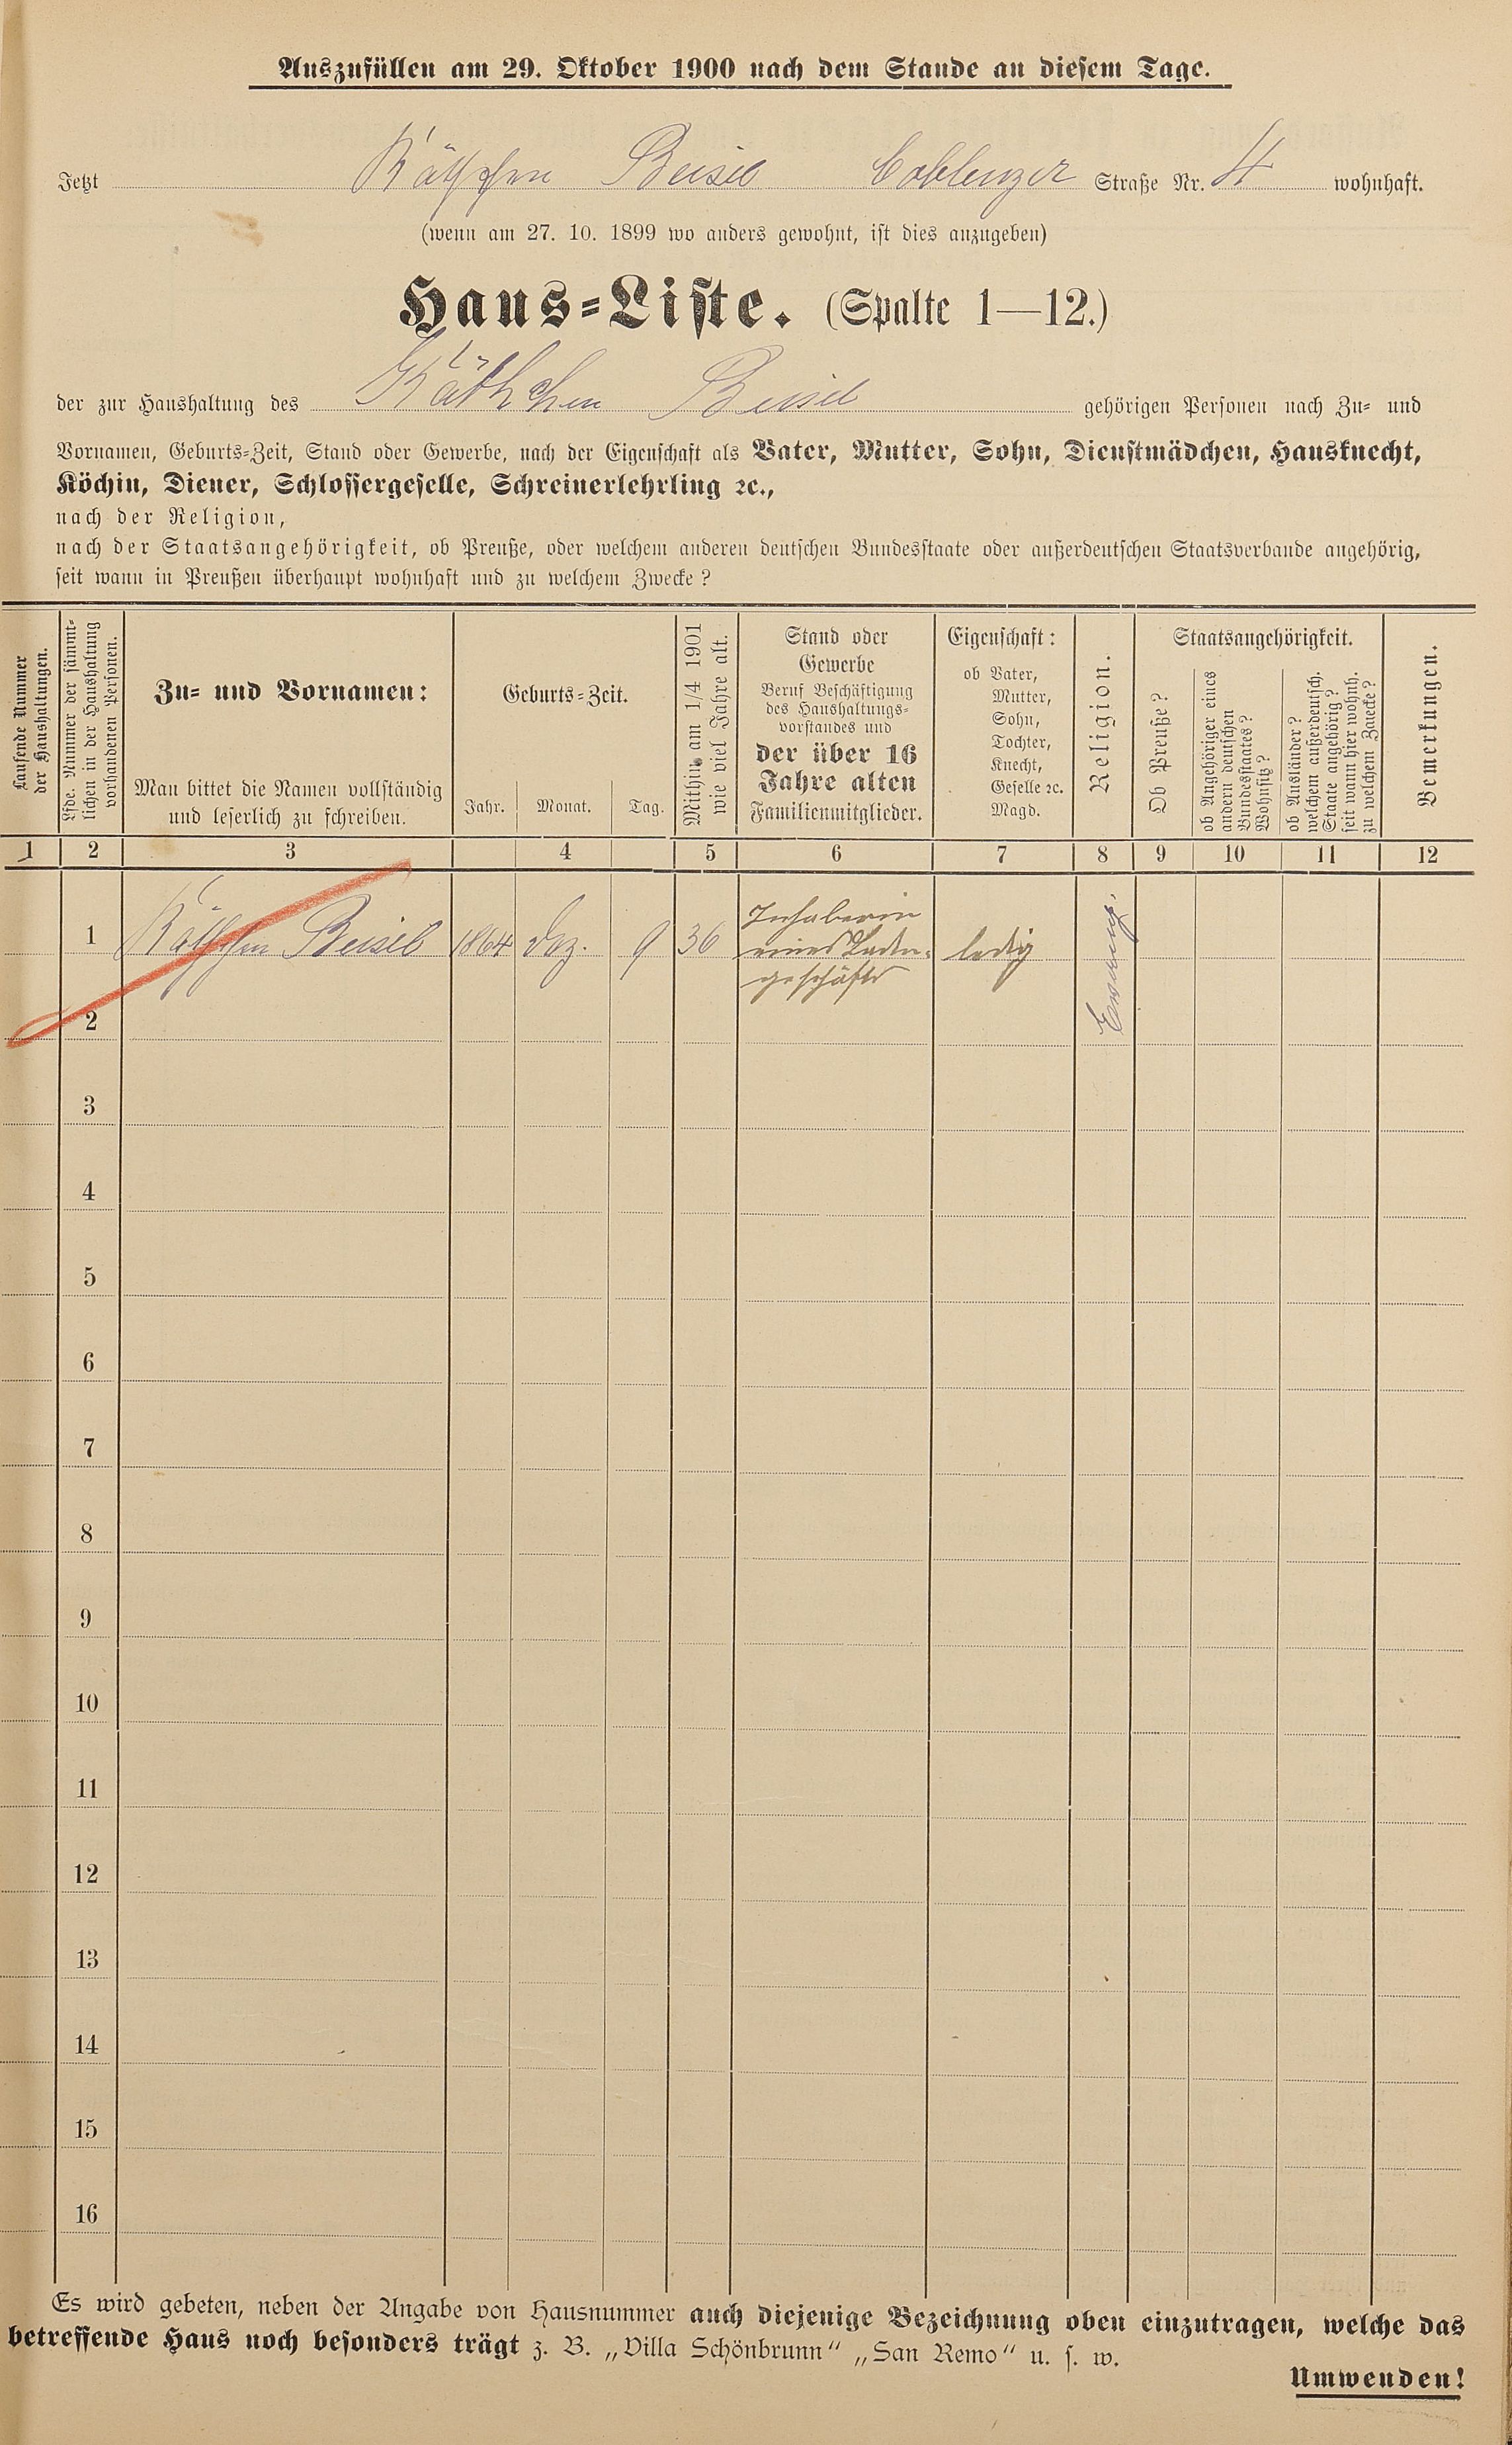 Auszufüllen am 29. Oktober 1900 nach dem Stande an diesem Tage.
Jetzt Käthchen Beisel Coblenzer Straße Nr. 4 wohnhaft.
(wenn am 27. 10. 1899 wo anders gewohnt, ist dies anzugeben)
Haus-Liste. (Spalte 1—12.)
der zur Haushaltung des Käthchen Beisel gehörigen Personen nach Zu- und
Vornamen, Geburts-Zeit, Stand oder Gewerbe, nach der Eigenschaft als Vater, Mutter, Sohn, Dienstmädchen, Hausknecht,
Köchin, Diener, Schlossergeselle, Schreinerlehrling ꝛc.,
nach der Religion,
nach der Staatsangehörigkeit, ob Preuße, oder welchem anderen deutschen Bundesstaate oder außerdeutschen Staatsverbande angehörig,
seit wann in Preußen überhaupt wohnhaft und zu welchem Zwecke?
Laufende Nummer
der Haushaltungen.
Lfde. Nummer der sämmt-
lichen in der Haushaltung
vorhandenen Personen.
Zu- und Vornamen:
Man bittet die Namen vollständig
und leserlich zu schreiben.
Geburts-Zeit.
Jahr. Monat. Tag.
Mithin am 1/4 1901
wie viel Jahre alt.
Stand oder
Gewerbe
Beruf Beschäftigung
des Haushaltungs-
vorstandes und
der über 16
Jahre alten
Familienmitglieder.
Eigenschaft:
ob Vater,
Mutter,
Sohn,
Tochter,
Knecht,
Geselle ꝛc.
Magd.
Religion.
Staatsangehörigkeit.
Ob Preuße?
ob Angehöriger eines
andern deutschen
Bundesstaates?
Wohnsitz?
ob Ausländer?
welchem außerdeutsch.
Staate angehörig?
seit wann hier wohnh.
zu welchem Zwecke?
Bemerkungen.
1 2 3 4 5 6 7 8 9 10 11 12
1 Käthchen Beisel 1864 Dez. 9 36 Inhaberin
eines Laden-
geschäfts
ledig
Evang.
2
3
4
5
6
7
8
9
10
11
12
13
14
15
16
Es wird gebeten, neben der Angabe von Hausnummer auch diejenige Bezeichnung oben einzutragen, welche das
betreffende Haus noch besonders trägt z. B. „Villa Schönbrunn“ „San Remo“ u. s. w.
Umwenden!